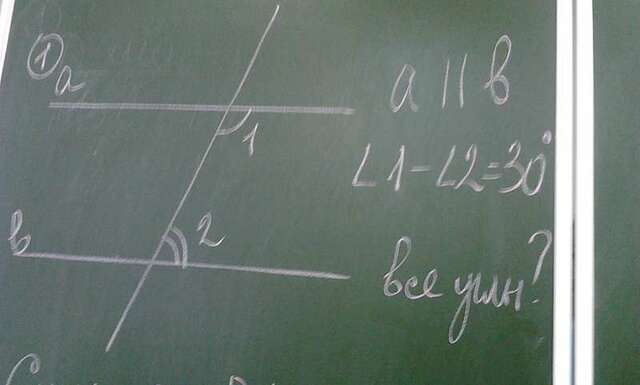 1
a
a || b
1
∠1-∠2=30°
2
b
все углы?